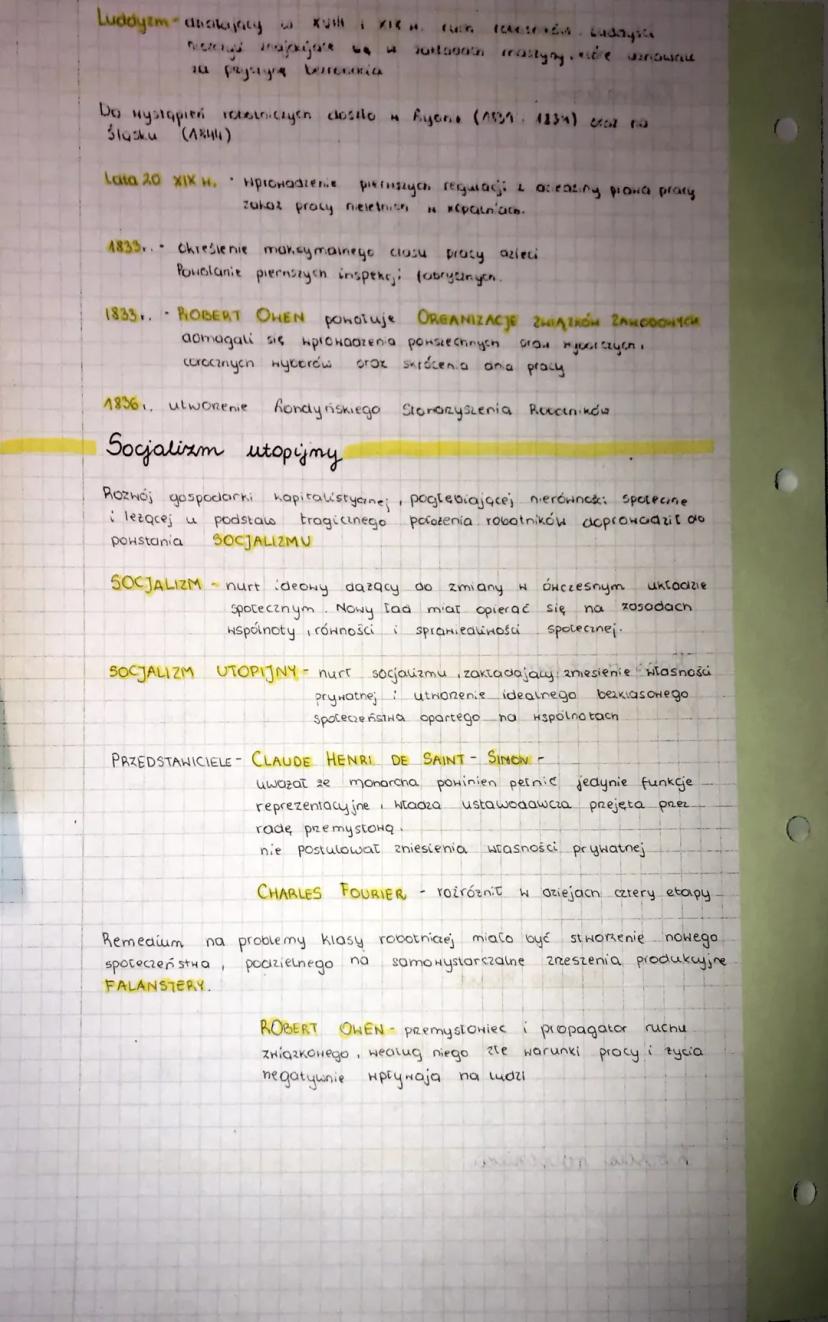 Luddyzm - działający w XVIII i XIX w. ruch robotników. Luddyści
niszczyli znajdujące się w zakładach maszyny, które uznawali
za przyczynę bezrobocia
Do wystąpień robotniczych doszło w Lyonie (1831, 1834) oraz na
Śląsku (1844)
Lata 20 XIX w. • wprowadzenie pierwszych regulacji z dziedziny prawa pracy
zakaz pracy nieletnich w kopalniach.
1833r. • określenie maksymalnego czasu pracy dzieci
Powołanie pierwszych inspekcji fabrycznych.
1833r. • ROBERT OWEN powołuje ORGANIZACJE ZWIĄZKÓW ZAWODOWYCH
domagali się wprowadzenia powszechnych praw wyborczych,
corocznych wyborów oraz skrócenia dnia pracy
1836r. utworzenie Londyńskiego Stowarzyszenia Robotników
Socjalizm utopijny
Rozwój gospodarki kapitalistycznej, pogłębiającej nierówności społeczne
i leżącej u podstaw tragicznego położenia robotników doprowadził do
powstania SOCJALIZMU
SOCJALIZM - nurt ideowy dążący do zmiany w ówczesnym układzie
społecznym. Nowy ład miał opierać się na zasadach
wspólnoty, równości i sprawiedliwości społecznej.
SOCJALIZM UTOPIJNY - nurt socjalizmu, zakładający zniesienie własności
prywatnej i utworzenie idealnego bezklasowego
społeczeństwa opartego na wspólnotach
PRZEDSTAWICIELE - CLAUDE HENRI DE SAINT - SIMON -
uważał że monarcha powinien pełnić jedynie funkcje
reprezentacyjne, władza ustawodawcza przejęta przez
radę przemysłową.
nie postulował zniesienia własności prywatnej
CHARLES FOURIER - rozróżnił w dziejach cztery etapy
Remedium na problemy klasy robotniczej miało być stworzenie nowego
społeczeństwa, podzielnego na samowystarczalne zrzeszenia produkcyjne
FALANSTERY.
ROBERT OWEN - przemysłowiec i propagator ruchu
związkowego, według niego złe warunki pracy i życia
negatywnie wpływają na ludzi